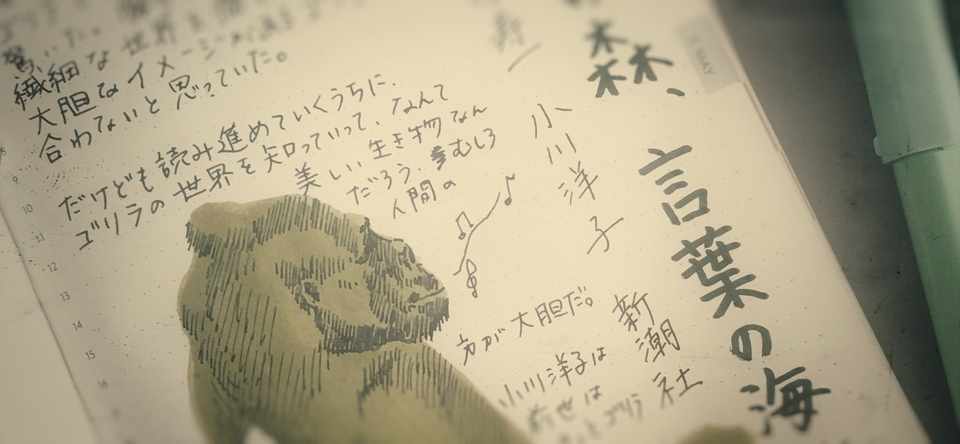 繊細な世界を
大胆なイメージの
合わないと思っていた。
だけども読み進めていくうちに、
ゴリラの世界を知っていって、なんて
美しい生き物なん
だろう、むしろ
人間の
方が大胆だ。
小川洋子は
前世は
ゴリラ
森、言葉の海
小川洋子
新潮社
9
10
11
12
13
14
15
16
MAY